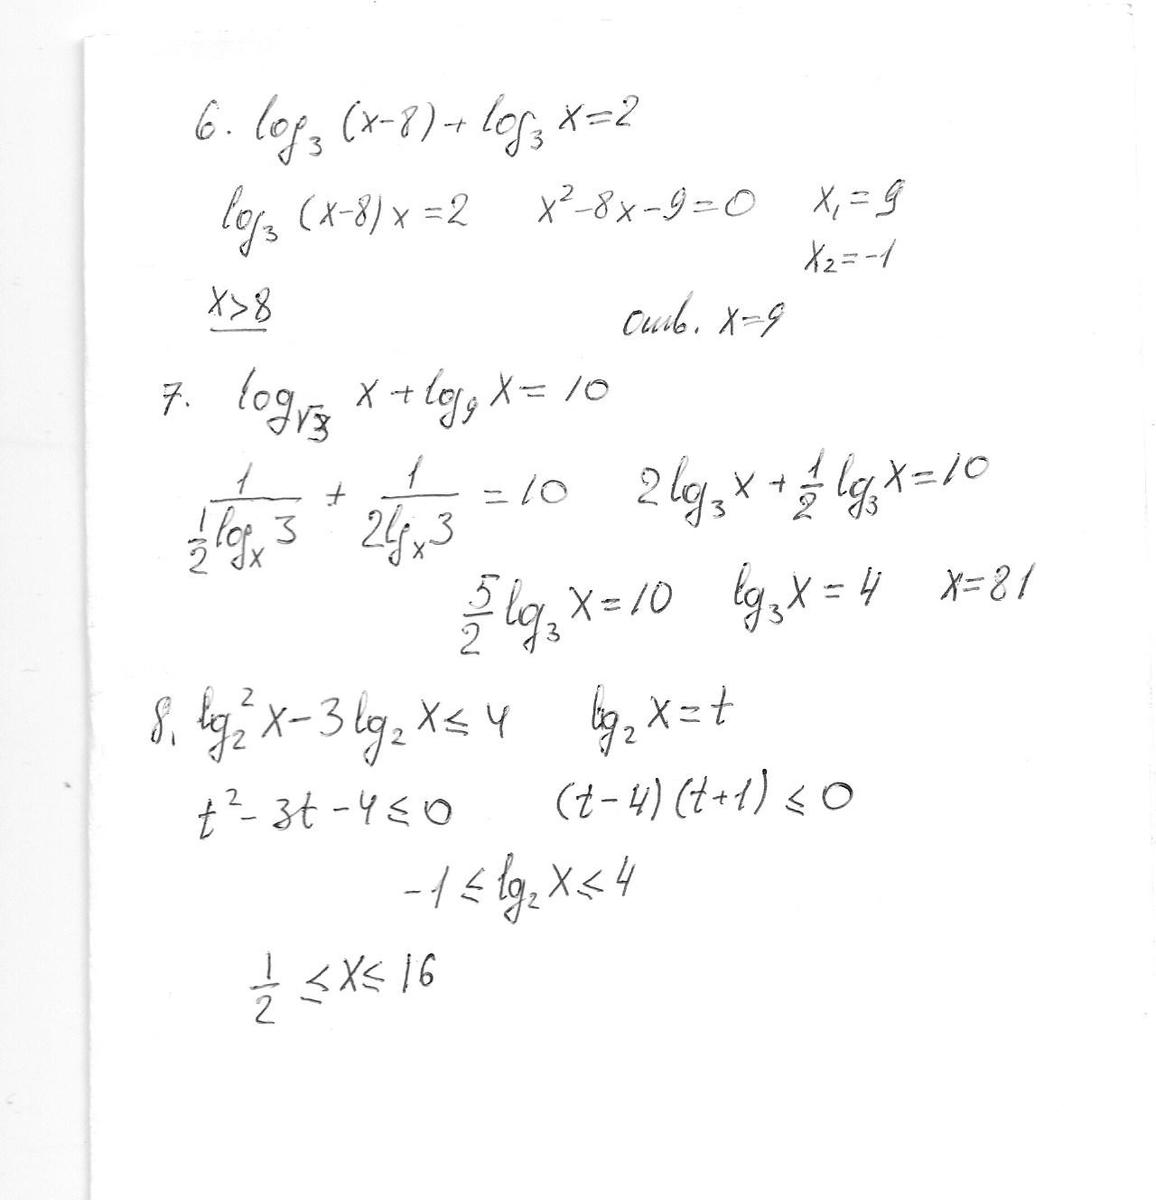 6. log₃ (x-8) + log₃ x = 2
log₃ (x-8) x = 2 x² - 8x - 9 = 0 x₁ = 9
x₂ = -1
x > 8 отв. x = 9
7. log_√3 x + log₉ x = 10
1/(1/2 log_x 3) + 1/(2lg_x 3) = 10 2lg₃ x + 1/2 lg₃ x = 10
5/2 lg₃ x = 10 lg₃ x = 4 x = 81
8. lg₂² x - 3 lg₂ x ≤ 4 lg₂ x = t
t² - 3t - 4 ≤ 0 (t-4) (t+1) ≤ 0
-1 ≤ lg₂ x ≤ 4
1/2 ≤ x ≤ 16